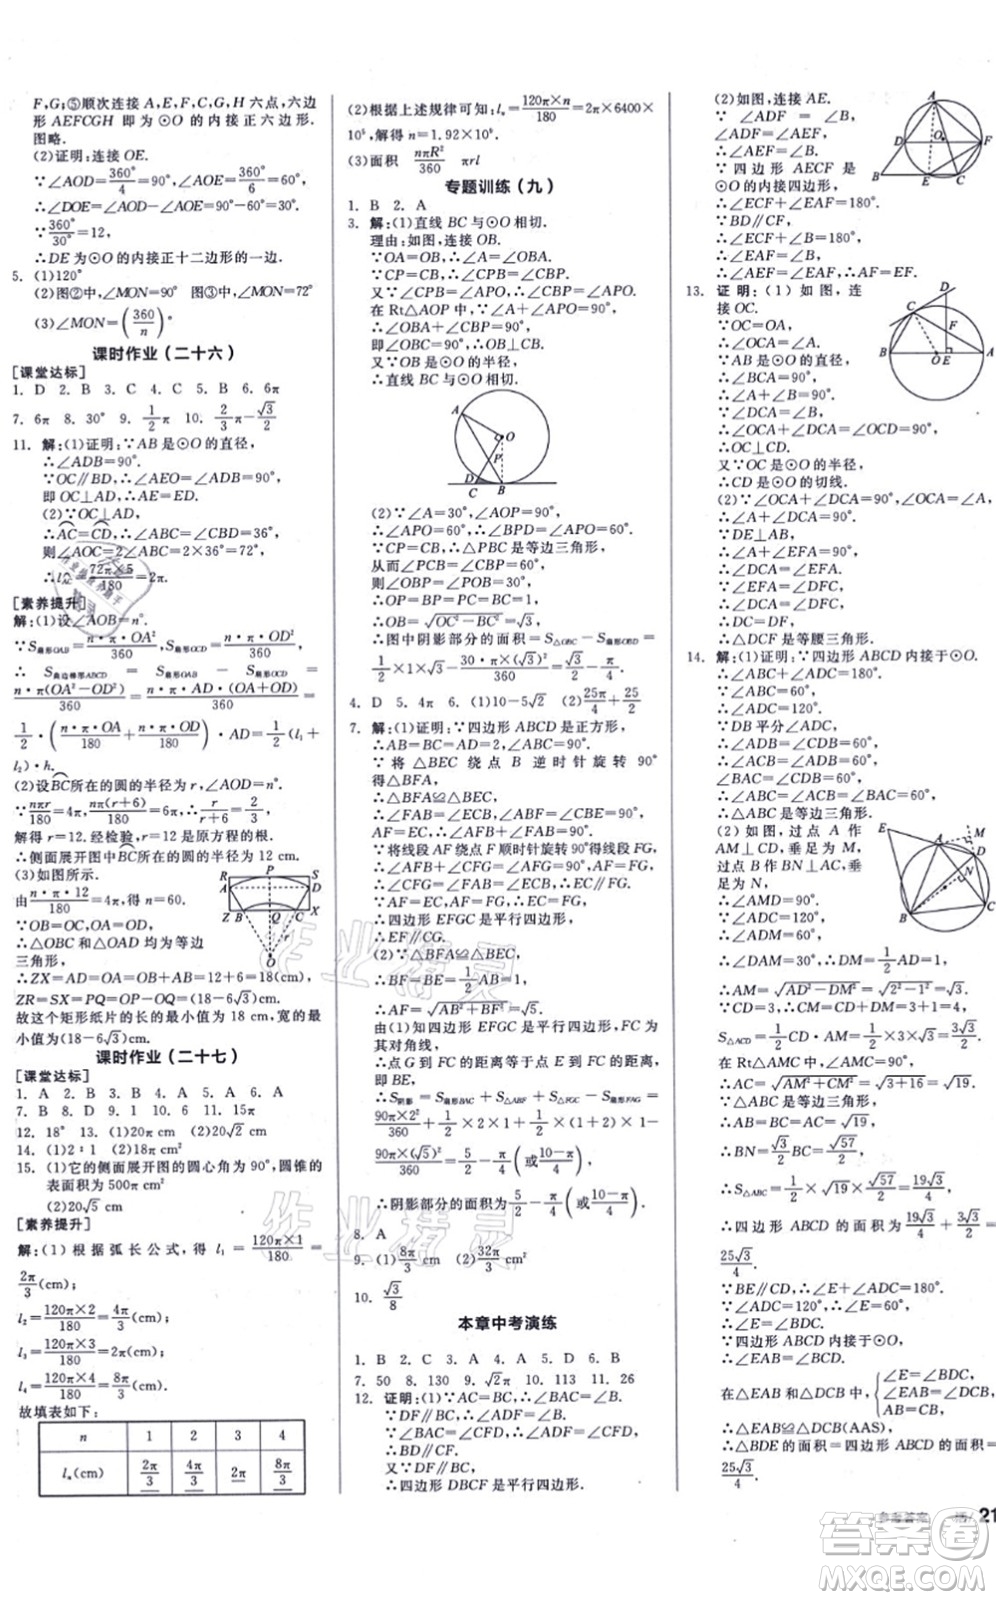 F,G;⑤顺次连接 A,E,F,C,G,H 六点,六边
形 AEFCGH 即为⊙O 的内接正六边形.
图略.
(2)证明:连接 OE.
∵∠AOD=360°/4=90°,∠AOE=360°/6=60°,
∴∠DOE=∠DOA-∠AOE=90°-60°=30°.
∵360°/30°=12,
∴DE 为⊙O 的内接正十二边形的一边.
5. (1)120°
(2)图②中,∠MON=90° 图③中,∠MON=72°
(3)∠MON=(360/n)°
课时作业(二十六)
[课堂达标]
1. D 2. B 3. C 4. B 5. B 6. 6π
7. 6π 8. 30° 9. 1/2π 10. 2/3π-√3/2
11. 解:(1)证明:∵AB 是⊙O 的直径,
∴∠ADB=90°.
∵OC∥BD,∴∠AEO=∠ADB=90°,
即 OC⊥AD,∴AE=ED.
(2)∵OC⊥AD,
∴AC=CD,∴∠ABC=∠CBD=36°,
则∠AOC=2∠ABC=2×36°=72°,
72π×5/180=2π.
[素养提升]
解:(1)设∠AOB=n°.
∵S扇形OAB=n·π·OA²/360,S扇形OCD=n·π·OD²/360,
∴S曲边梯形ABCD=S扇形OAB-S扇形OCD=
n·π(OA²-OD²)/360=n·π·AD·(OA+OD)/360=
1/2·(n·π·OA/180+n·π·OD/180)·AD=1/2(l₁+
l₂)·h.
(2)设BC所在的圆的半径为 r,∠AOD=n°.
∵nπr/180=4π,nπ(r+6)/180=6π,∴r/(r+6)=2/3,
解得 r=12.经检验,r=12 是原方程的根.
∴侧面展开图中BC所在的圆的半径为 12 cm.
(3)如图所示.
由n·π·12/180=4π,得 n=60.
∵OB=OC,OA=OD,
∴△OBC 和△OAD 均为等边
三角形,
∴ZX=AD=OA=12+6=18(cm),
ZR=SX=PQ=OP-OQ=(18-6√3)(cm).
故这个矩形纸片的长的最小值为 18 cm,宽的最
小值为(18-6√3)cm.
课时作业(二十七)
[课堂达标]
1. A 2. B 3. B 4. A 5. A 6. A
7. B 8. D 9. 1 10. 6 11. 15π
12. 18° 13. (1)20π cm (2)20√2 cm
14. (1)2∶1 (2)18π cm²
15. (1)它的侧面展开图的圆心角为 90°,圆锥的
表面积为 500π cm²
(2)20√5 cm
[素养提升]
解:(1)根据弧长公式,得 l₁=120π×1/180=
2π/3(cm);
l₂=120π×2/180=4π/3(cm);
l₃=120π×3/180=2π(cm);
l₄=120π×4/180=8π/3(cm).
故填表如下:
n 1 2 3 4
lₙ(cm) 2π/3 4π/3 2π 8π/3
(2)根据上述规律可知:lₙ=120π×n/180=2π×6400×
10⁵,解得 n=1.92×10⁹.
(3)面积 nπR²/360 πrl
专题训练(九)
1. B 2. A
3. 解:(1)直线 BC 与⊙O 相切.
理由:如图,连接 OB.
∵OA=OB,∴∠A=∠OBA.
∵CP=CB,∴∠CPB=∠CBP.
又∵∠CPB=∠APO,∴∠APO=∠CBP.
在 Rt△AOP 中,∵∠A+∠APO=90°,
∴∠OBA+∠CBP=90°,
即∠OBC=90°,∴OB⊥CB.
又∵OB 是⊙O 的半径,
∴直线 BC 与⊙O 相切.
A
O
P
D
C
B
(2)∵∠A=30°,∠AOP=90°,
∴∠APO=60°,∴∠BPD=∠APO=60°.
∵PC=CB,∴△PBC 是等边三角形,
从而∠PCB=∠CBP=60°,
则∠OBP=∠POB=30°,
∴OP=PB=PC=1,∴BC=1,
∴OB=√(OC²-BC²)=√3,
∴图中阴影部分的面积=S△OBC-S扇形OBD=
1/2×1×√3-30·π·(√3)²/360=√3/2-π/4.
4. D 5. 4π 6. (1)10-5√2 (2)25π/4+25/2
7. 解:(1)证明:∵四边形 ABCD 是正方形,
∴AB=BC=AD=2,∠ABC=90°.
∵将△BEC 绕点 B 逆时针旋转 90°
得到△BFA,
∴△BFA≌△BEC,
∴∠FAB=∠ECB,∠ABF=∠CBE=90°,
AF=EC,∴∠AFB+∠FAB=90°.
∵将线段 AF 绕点 F 顺时针旋转 90°得线段 FG,
∴∠AFB+∠CFG=∠AFG=90°,AF=FG,
∴∠CFG=∠FAB=∠ECB,∴EC∥FG.
∵AF=EC,AF=FG,∴EC=FG,
∴四边形 EFGC 是平行四边形,
∴EF∥CG.
(2)∵△BFA≌△BEC,
∴BF=BE=1/2AB=1,
∴AF=√(AB²+BF²)=√5.
由(1)知四边形 EFGC 是平行四边形,FC 为
其对角线,
∴点 G 到 FC 的距离等于点 E 到 FC 的距离,
即 BE,
∴S阴影=S扇形BAC+S△ABF+S△FGC-S扇形FAG=
90π×2²/360+1/2×2×1+1/2×(1+2)×1-
90π×(√5)²/360=5/2-π/4(或(10-π)/4),
∴阴影部分的面积为5/2-π/4(或(10-π)/4).
8. A
9. (1)8π/3 cm (2)32π/3 cm²
10. √3/8
本章中考演练
1. B 2. C 3. A 4. A 5. D 6. B
7. 50 8. 130 9. √2π 10. 113 11. 26
12. 证明:(1)∵AC=BC,∴∠BAC=∠B.
∵DF∥BC,∴∠ADF=∠B.
又∵∠BAC=∠CFD,
∴∠ADF=∠CFD,∴BD∥CF.
又∵DF∥BC,
∴四边形 DBCF 是平行四边形.
(2)如图,连接 AE.
∵∠ADF=∠B,
∠ADF=∠AEF,
∴∠AEF=∠B.
∵四边形 AECF 是
⊙O 的内接四边形,
∴∠ECF+∠EAF=180°.
∵BD∥CF,
∴∠ECF+∠B=180°,
∴∠EAF=∠B,
∴∠AEF=∠EAF,∴AF=EF.
13. 证明:(1)如图,连
接 OC.
∵OC=OA,
∴∠OCA=∠A.
∵AB 是⊙O 的直径,
∴∠BCA=90°,
∴∠A+∠B=90°.
∵∠DCA=∠B,
∴∠OCA+∠DCA=∠OCD=90°,
∴OC⊥CD.
又∵OC 是⊙O 的半径,
∴CD 是⊙O 的切线.
(2)∵∠OCA+∠DCA=90°,∠OCA=∠A,
∴∠A+∠DCA=90°.
∵DE⊥AB,
∴∠A+∠EFA=90°,
∴∠DCA=∠EFA.
∵∠EFA=∠DFC,
∴∠DCA=∠DFC,
∴DC=DF,
∴△DCF 是等腰三角形.
14. 解:(1)证明:∵四边形 ABCD 内接于⊙O.
∴∠ABC+∠ADC=180°.
∵∠ABC=60°,
∴∠ADC=120°.
∵DB 平分∠ADC,
∴∠ADB=∠CDB=60°,
∴∠ACB=∠ADB=60°,
∠BAC=∠CDB=60°,
∴∠ABC=∠ACB=∠BAC,
∴△ABC 是等边三角形.
(2)如图,过点 A 作
AM⊥CD,垂足为 M,
过点 B 作 BN⊥AC,
垂足为 N,
∴∠AMD=90°.
∵∠ADC=120°,
∴∠ADM=60°,
∴∠DAM=30°,∴DM=1/2AD=1,
∴AM=√(AD²-DM²)=√(2²-1²)=√3.
∵CD=3,∴CM=CD+DM=3+1=4,
∴S△ACD=1/2CD·AM=1/2×3×√3=3√3/2.
在 Rt△AMC 中,∠AMC=90°,
∴AC=√(AM²+CM²)=√(3+16)=√19.
∵△ABC 是等边三角形,
∴AB=BC=AC=√19,
∴BN=√3/2BC=√57/2,
∴S△ABC=1/2×√19×√57/2=19√3/4,
∴四边形 ABCD 的面积=19√3/4+3√3/2=
25√3/4.
∵BE∥CD,∴∠E+∠ADC=180°.
∵∠ADC=120°,
∴∠E=60°,∴∠E=∠BDC.
∵四边形 ABCD 内接于⊙O,
∴∠EAB=∠BCD.
在△EAB 和△DCB 中,{∠E=∠BDC, ∠EAB=∠DCB, AB=BC,
∴△EAB≌△DCB(AAS),
∴△BDE 的面积=四边形 ABCD 的面积=
25√3/4.
参考答案
21
作业精灵
答案圈
MXQE.COM